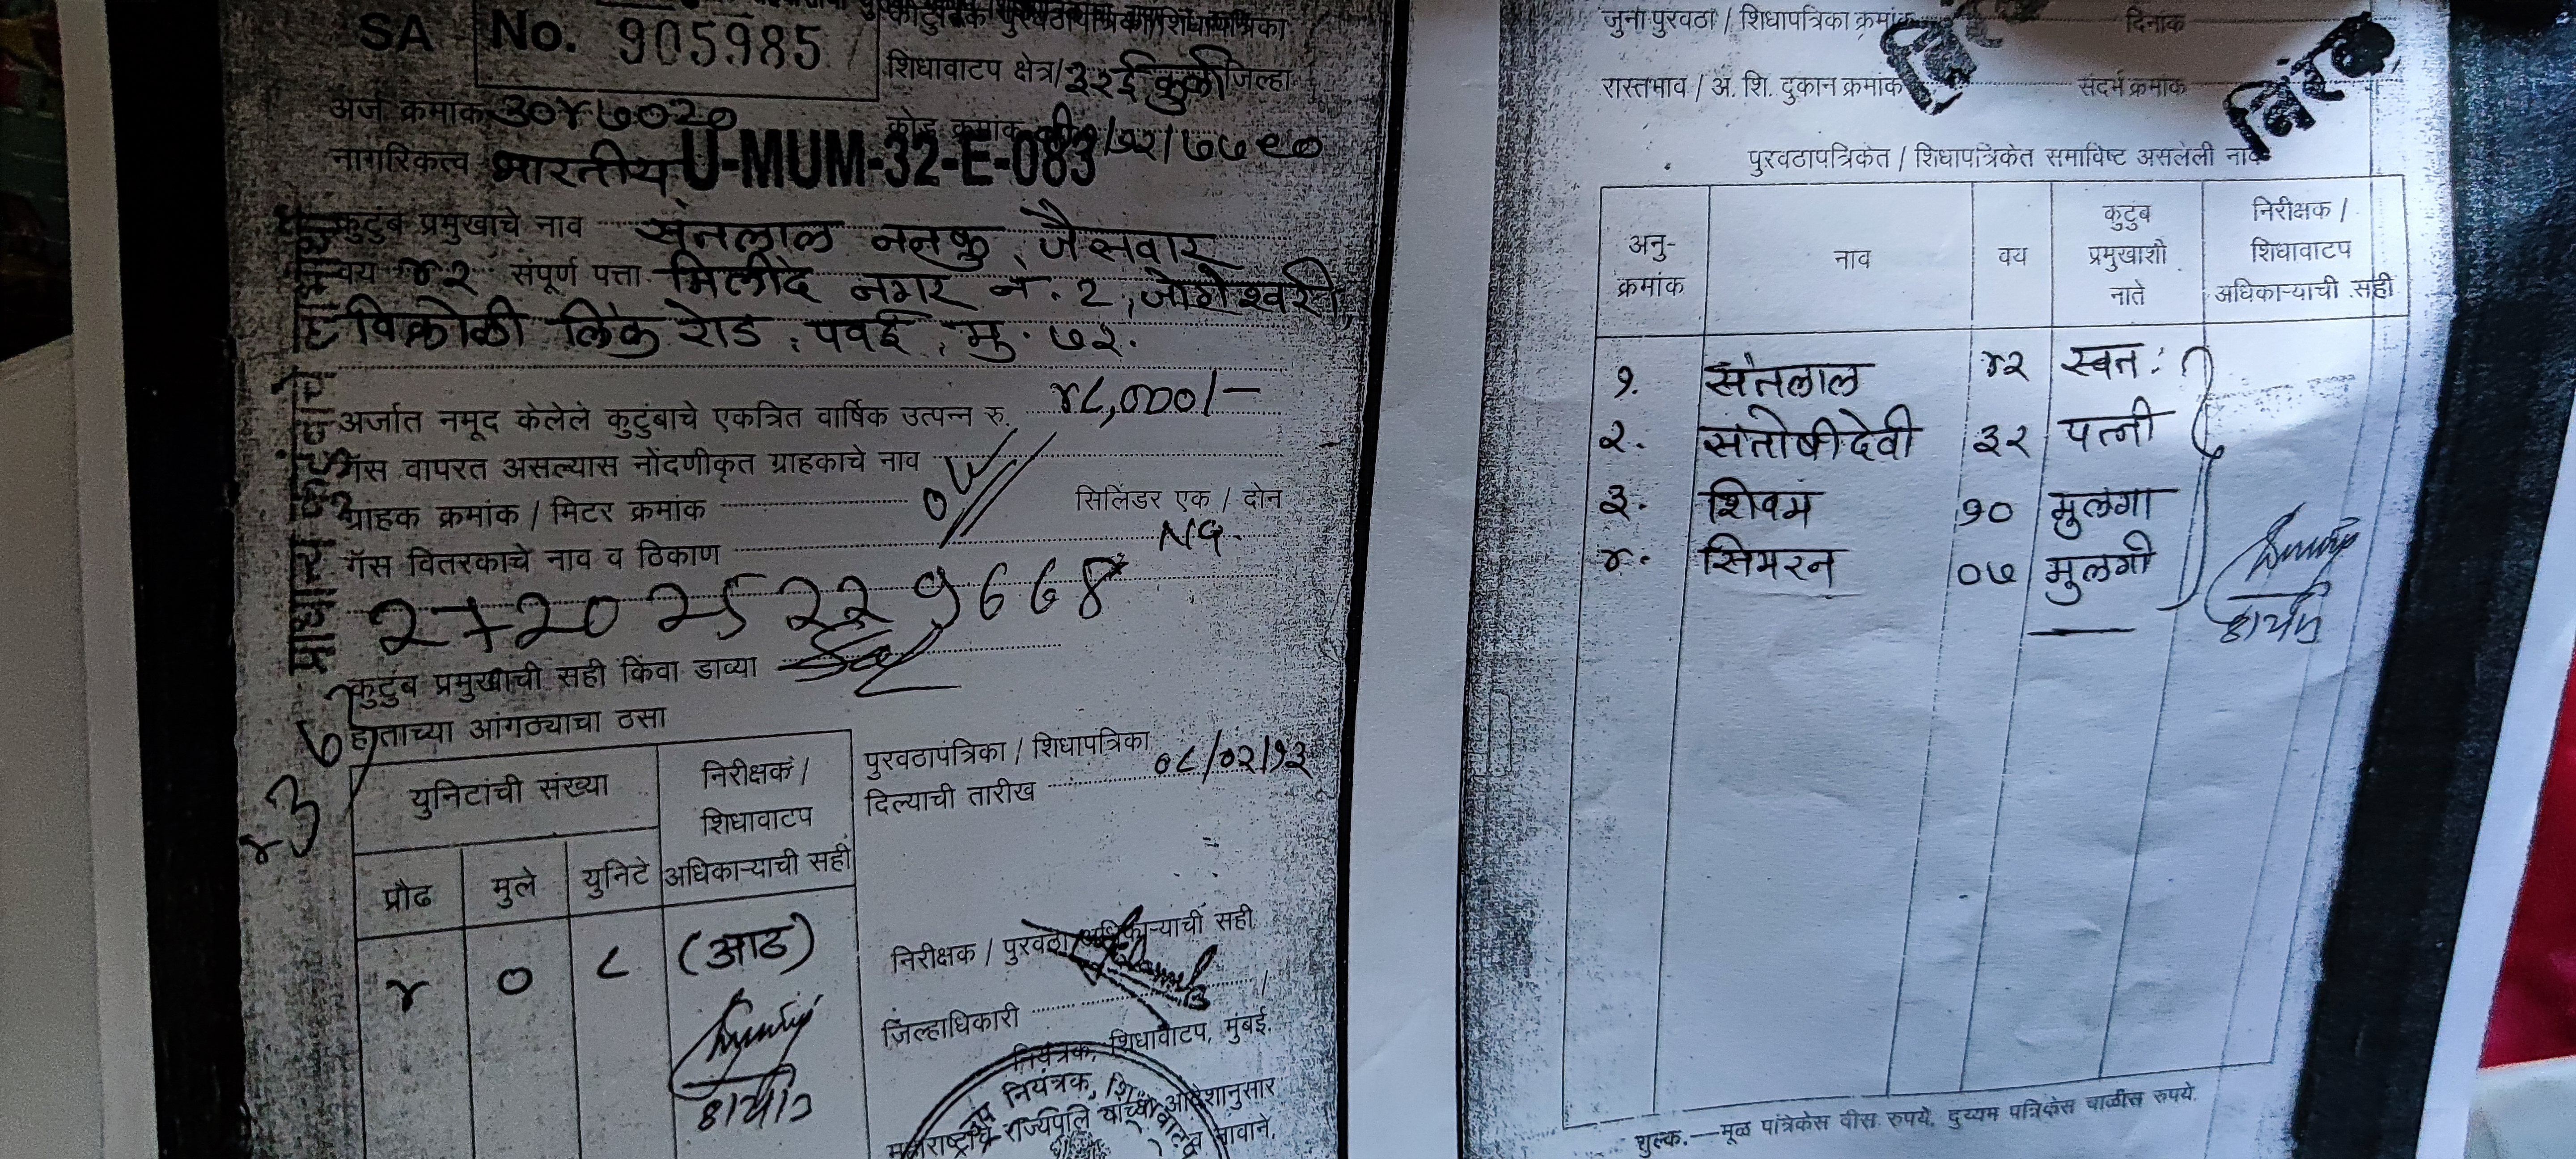 SA No. 905985
कौटुंबिक पुरवठापत्रिका/शिधापत्रिका
शिधावाटप क्षेत्र/ ३२ई कुर्ला जिल्हा
अर्ज क्रमांक ३०४७०२०
कोड क्रमांक /७२/७७९०
नागरिकत्व भारतीय U-MUM-32-E-083
कुटुंब प्रमुखाचे नाव संतलाल ननकु जैसवार
वय ४२ संपूर्ण पत्ता मिलींद नगर नं. 2, जोगेश्वरी
विक्रोळी लिंक रोड, पवई, मु. ७२.
अर्जात नमूद केलेले कुटुंबाचे एकत्रित वार्षिक उत्पन्न रु. ४८,०००/-
गॅस वापरत असल्यास नोंदणीकृत ग्राहकाचे नाव
ग्राहक क्रमांक / मिटर क्रमांक
सिलिंडर एक / दोन
NG.
गॅस वितरकाचे नाव व ठिकाण
कुटुंब प्रमुखाची सही किंवा डाव्या
हाताच्या आंगठ्याचा ठसा
युनिटांची संख्या
निरीक्षक / शिधावाटप अधिकाऱ्याची सही
प्रौढ मुले युनिटे
४ ० ८ (आठ)
पुरवठापत्रिका / शिधापत्रिका
दिल्याची तारीख ०८/०२/१३
निरीक्षक / पुरवठा अधिकाऱ्याची सही
जिल्हाधिकारी
नियंत्रक, शिधावाटप, मुंबई.
महाराष्ट्राचे राज्यपाल यांच्या आदेशानुसार
नावाने.
जुना पुरवठा / शिधापत्रिका क्रमांक दिनांक
रास्तभाव / अ. शि. दुकान क्रमांक संदर्भ क्रमांक
पुरवठापत्रिकेत / शिधापत्रिकेत समाविष्ट असलेली नावे
अनु-क्रमांक नाव वय कुटुंब प्रमुखाशी नाते निरीक्षक / शिधावाटप अधिकाऱ्याची सही
१. संतलाल ४२ स्वत:
२. संतोषीदेवी ३२ पत्नी
३. शिवम १० मुलगा
४. सिमरन ०७ मुलगी
शुल्क.—मूळ पत्रिकेस वीस रुपये. दुय्यम पत्रिकेस चाळीस रुपये.